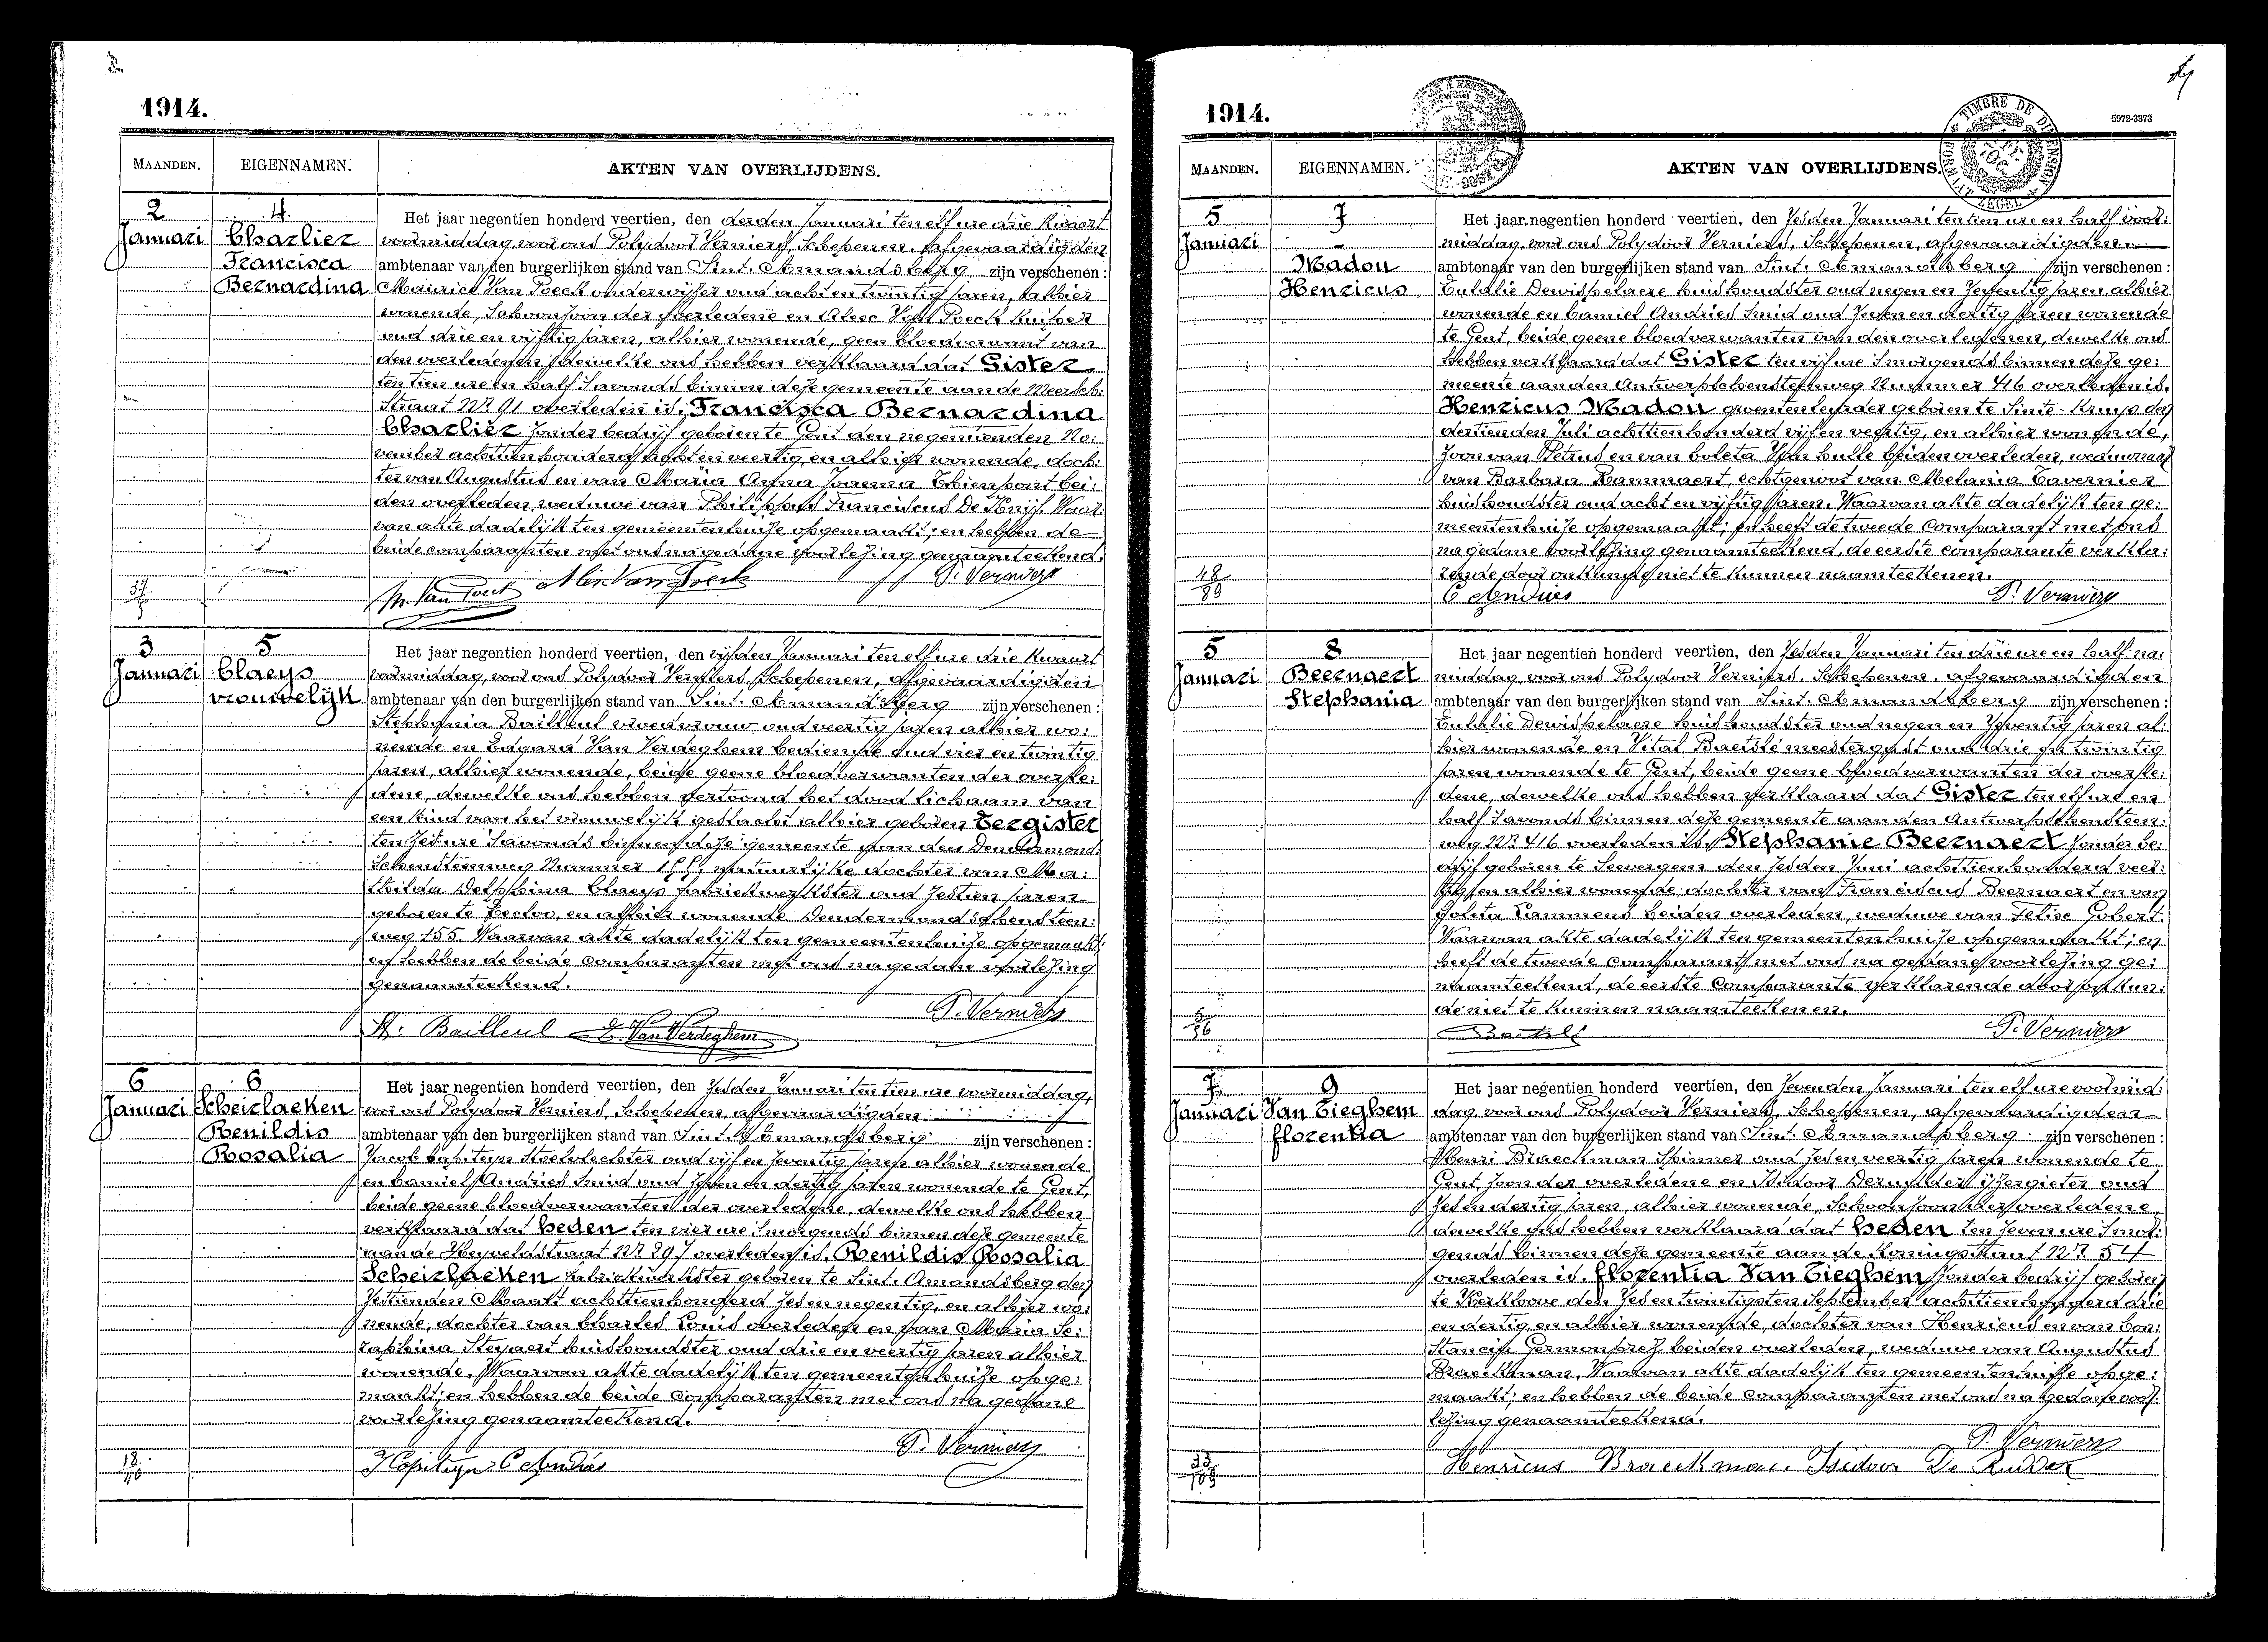 1914.
MAANDEN. EIGENNAMEN. AKTEN VAN OVERLIJDENS.
2 Januari
4 Charlier Francisca Bernardina
Het jaar negentien honderd veertien, den derden Januari ten elf ure drie kwaart
voormiddag, voor ons Polydoor Verniers, Schepenen, afgevaardigden
ambtenaar van den burgerlijken stand van Sint-Amandsberg zijn verschenen:
Maurice Van Poeck onderwijzer oud acht en twintig jaren, alhier
wonende, schoonzoon der overledene en Alex Van Poeck kuiper
oud drie en vijftig jaren, alhier wonende, geen bloedverwant van
den overledenen, dewelke ons hebben verklaard dat Gister
ten tien ure en half 's avonds binnen deze gemeente aan de Meersch-
straat Nr 91 overleden is, Francisca Bernardina
Charlier zonder bedrijf geboren te Gent den negentienden No-
vember achttien honderd acht en veertig, en alhier wonende, doch-
ter van Augustus en van Maria Anna Joanna Thienpont bei-
den overleden, weduwe van Philippus Franciscus De Knijf. Waar-
van akte dadelijk ten gemeentenhuize opgemaakt; en hebben de
beide comparanten met ons na gedane voorlezing genaamteekend.
Alex Van Poeck P. Verniers
3 Januari
5 Claeys vrouwelijk
Het jaar negentien honderd veertien, den vijfden Januari ten elf ure drie kwaart
voormiddag, voor ons Polydoor Verniers, Schepenen, afgevaardigden
ambtenaar van den burgerlijken stand van Sint-Amandsberg zijn verschenen:
Stephania Bailleul vroedvrouw oud veertig jaren alhier wo-
nende en Edgard Van Verdeghem bediende oud vier en twintig
jaren, alhier wonende, beide geene bloedverwanten der overle-
dene, dewelke ons hebben vertoond het dood lichaam van
een kind van het vrouwelijk geslacht alhier geboren Eergister
ten zes ure 's avonds binnen deze gemeente aan den Dendermond-
schensteenweg Nummer 155, natuurlijke dochter van Ma-
thilda Delphina Claeys fabriekwerkster oud zestien jaren
geboren te Eecloo, en alhier wonende Dendermondschensteen-
weg 155. Waarvan akte dadelijk ten gemeentenhuize opgemaakt;
en hebben de beide comparanten met ons na gedane voorlezing
genaamteekend.
St. Bailleul E. Van Verdeghem P. Verniers
6 Januari
6 Scheirlaeken Renildis Rosalia
Het jaar negentien honderd veertien, den zesden Januari ten tien ure voormiddag,
voor ons Polydoor Verniers, Schepenen, afgevaardigden
ambtenaar van den burgerlijken stand van Sint-Amandsberg zijn verschenen:
Jacob Kapiteyn stoelvlechter oud vijf en zeventig jaren alhier wonende
en Camiel Andries smid oud zeven en dertig jaren wonende te Gent,
beide geene bloedverwanten der overledene, dewelke ons hebben
verklaard dat heden ten vier ure 's morgends binnen deze gemeente
aan de Heyveldstraat Nr 297 overleden is, Renildis Rosalia
Scheirlaeken fabriekwerkster geboren te Sint-Amandsberg den
zestienden Maart achttien honderd zes en negentig, en alhier wo-
nende, dochter van Charles Louis overleden en van Maria Se-
raphina Steyaert huishoudster oud drie en veertig jaren alhier
wonende. Waarvan akte dadelijk ten gemeentenhuize opge-
maakt; en hebben de beide comparanten met ons na gedane
voorlezing genaamteekend.
P. Verniers
J Kapiteyn C Andries
1914.
5972-3373
MAANDEN. EIGENNAMEN. AKTEN VAN OVERLIJDENS.
5 Januari
7 Madou Henricus
Het jaar negentien honderd veertien, den zesden Januari ten tien ure en half voor-
middag, voor ons Polydoor Verniers, Schepenen, afgevaardigden
ambtenaar van den burgerlijken stand van Sint-Amandsberg zijn verschenen:
Eulalie Dewispelaere huishoudster oud negen en zeventig jaren alhier
wonende en Camiel Andries smid oud zeven en dertig jaren wonende
te Gent, beide geene bloedverwanten van den overledenen, dewelke ons
hebben verklaard dat Gister ten vijf ure 's morgends binnen deze ge-
meente aan den Antwerpschensteenweg Nummer 416 overleden is,
Henricus Madou groentenleurder geboren te Sinte-Kruys den
dertienden Juli achttien honderd vijf en veertig, en alhier wonende,
zoon van Petrus en van Coleta Van Hulle beiden overleden, weduwnaar
van Barbara Dammaert, echtgenoot van Melania Tavernier
huishoudster oud acht en vijftig jaren. Waarvan akte dadelijk ten ge-
meentenhuize opgemaakt; en heeft de tweede comparant met ons
na gedane voorlezing genaamteekend, de eerste comparante verkla-
rende door onkunde niet te kunnen naamteekenen.
48
89
C Andries P. Verniers
5 Januari
8 Beernaert Stephania
Het jaar negentien honderd veertien, den zesden Januari ten drie ure en half na-
middag voor ons Polydoor Verniers, Schepenen, afgevaardigden
ambtenaar van den burgerlijken stand van Sint-Amandsberg zijn verschenen:
Eulalie Dewispelaere huishoudster oud negen en zeventig jaren al-
hier wonende en Vital Baetslé meestergast oud drie en twintig
jaren wonende te Gent, beide geene bloedverwanten der overle-
dene, dewelke ons hebben verklaard dat Gister ten elf ure en
half 's avonds binnen deze gemeente aan den Antwerpschensteen-
weg Nr 416 overleden is, Stephanie Beernaert zonder be-
drijf geboren te Severgem den zesden Juni achttien honderd veer-
tig, en alhier wonende, dochter van Franciscus Beernaert en van
Coleta Lammens beiden overleden, weduwe van Felix Gobert.
Waarvan akte dadelijk ten gemeentenhuize opgemaakt; en
heeft de tweede comparant met ons na gedane voorlezing ge-
naamteekend, de eerste comparante verklarende door onkun-
de niet te kunnen naamteekenen.
Baetslé P. Verniers
7 Januari
9 Van Tieghem Florentia
Het jaar negentien honderd veertien, den zevenden Januari ten elf ure voormid-
dag, voor ons Polydoor Verniers, Schepenen, afgevaardigden
ambtenaar van den burgerlijken stand van Sint-Amandsberg zijn verschenen:
Henri Braeckman spinner oud zes en veertig jaren wonende te
Gent, zoon der overledene en Isidoor Deruyder ijzergieter oud
zes en dertig jaren, alhier wonende, schoonzoon der overledene,
dewelke ons hebben verklaard dat heden ten zeven ure 's mor-
gends binnen deze gemeente aan de Koningstraat Nr 54
overleden is, Florentia Van Tieghem zonder bedrijf geboren
te Kerkhove den zes en twintigsten September achttien honderd drie
en dertig, en alhier wonende, dochter van Henricus en van Con-
stancia Germonprez beiden overleden, weduwe van Augustus
Braeckman. Waarvan akte dadelijk ten gemeentenhuize opge-
maakt; en hebben de beide comparanten met ons na gedane voor-
lezing genaamteekend.
P. Verniers
Henricus Braeckman. Isidoor De Rudder